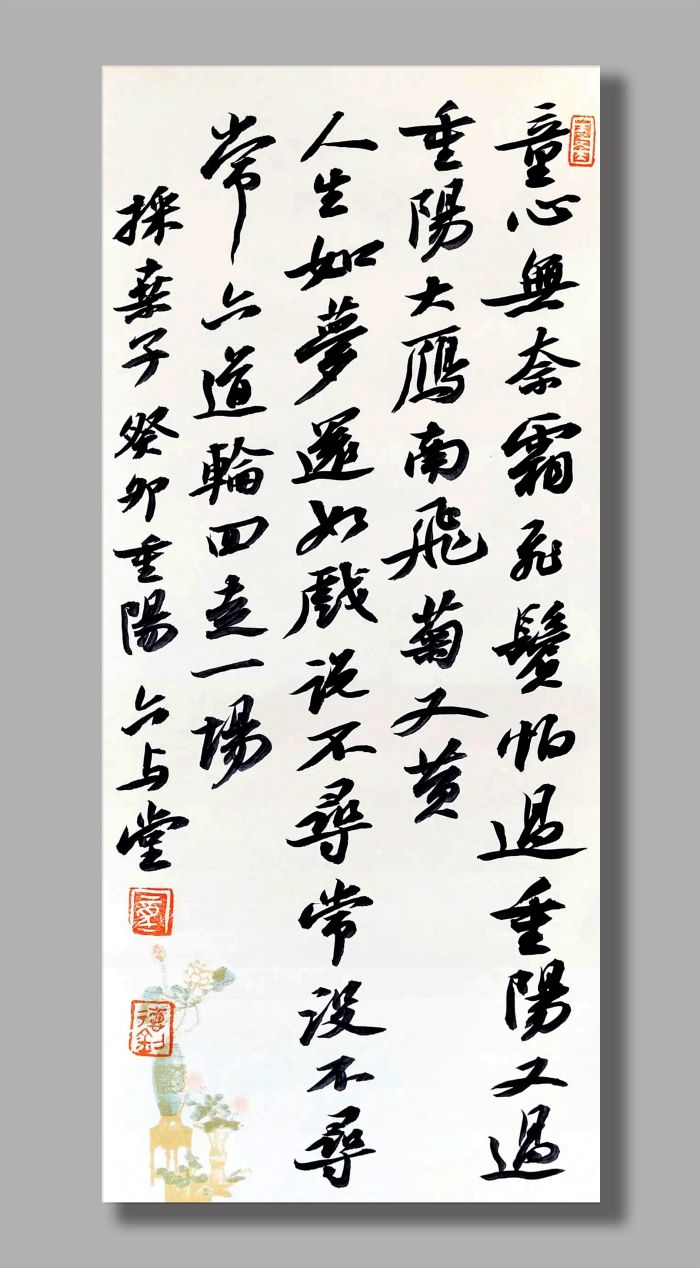 童心無奈霜飛鬢怕過重陽又過
重陽大鴈南飛菊又黄
人生如夢還如戲说不尋常没不尋
常六道輪回走一場
採桑子癸卯重陽六与堂